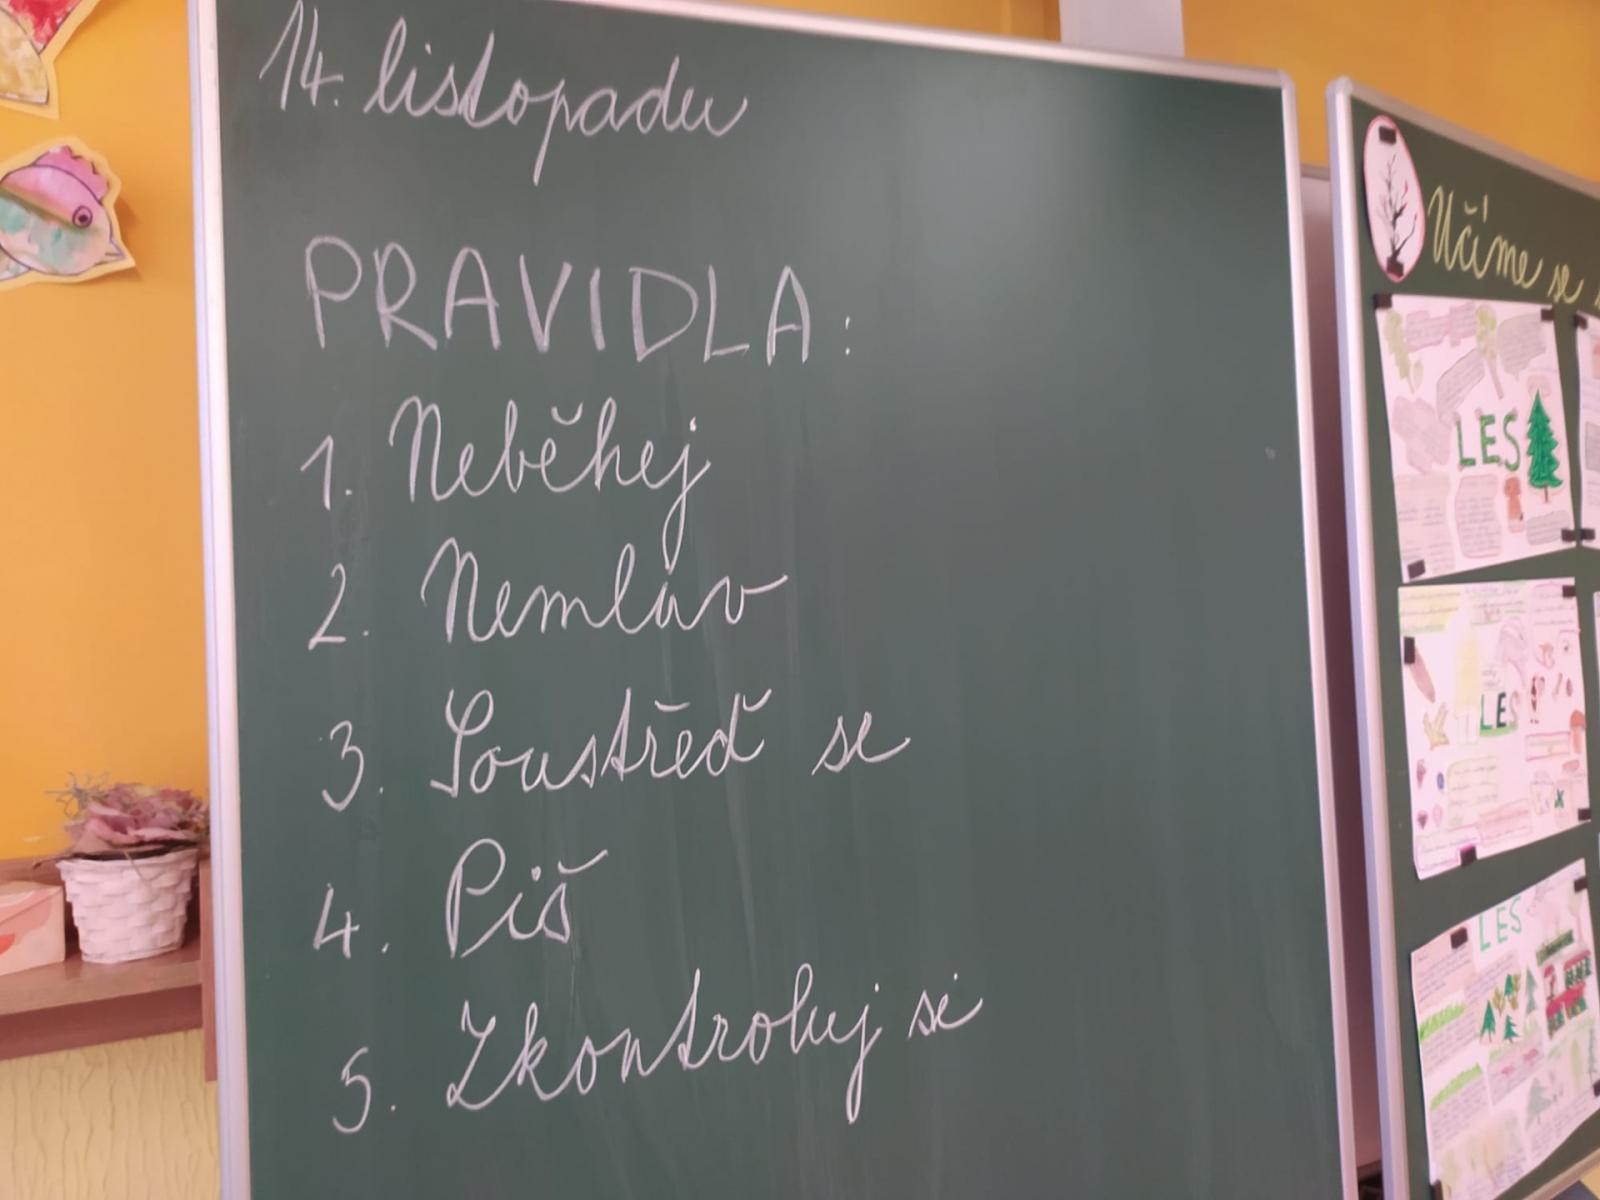 14. listopadu
PRAVIDLA:
1. Neběhej
2. Nemluv
3. Soustřeď se
4. Piš
5. Zkontroluj si
Učíme se
LES
LES
LES